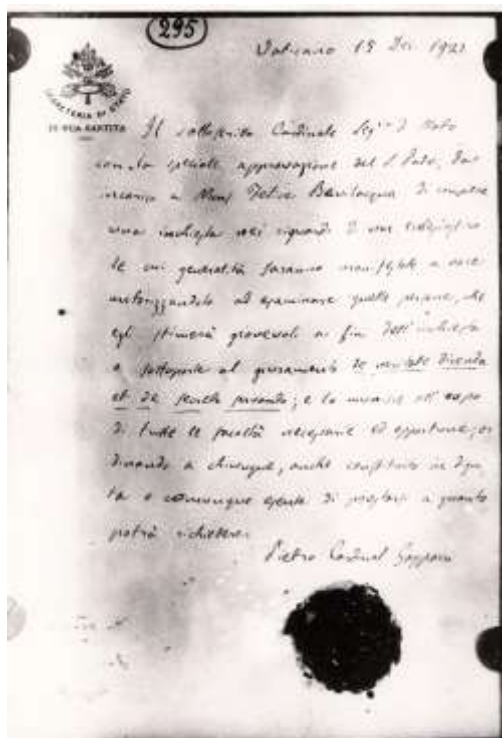 295
Vaticano 15 Dic. 1921
SEGRETERIA DI STATO
DI SUA SANTITÀ
Il sottoscritto Cardinale Seg. di Stato
con la speciale approvazione del S. Padre, da
incarico a Mons. Felice Bevilacqua di
una inchiesta nei riguardi di un religioso
le cui generalità saranno manifestate a voce
autorizzandolo ad esaminare quelle persone, che
egli stimerà giovevoli ai fini dell'inchiesta
e sottoporle al giuramento de veritate dicenda
et de secreto servando; e lo
di tutte le facoltà necessarie ed opportune, or
dinando a chiunque, anche costituito in digni
tà o comunque esente di prestarsi a quanto
potrà richiedere.
Pietro Cardinal Gasparri